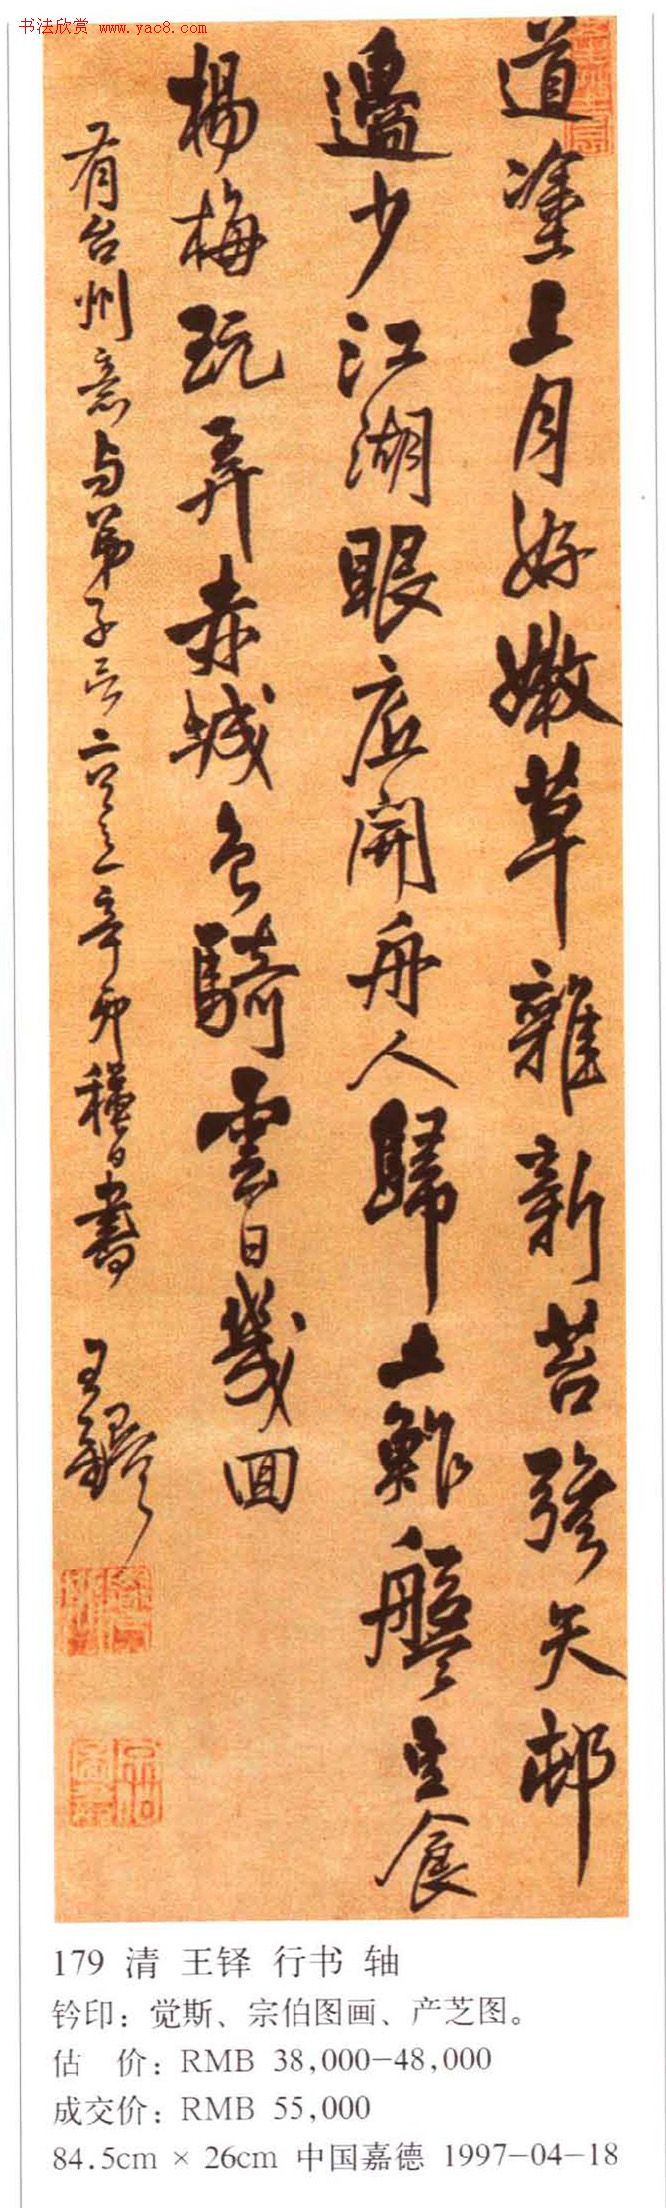 书法欣赏 www.yac8.com
道塗上月好嫩草雜新苔矢邨
邊少江湖眼底開舟人歸土鮓盤豆食
楊梅玩弄赤城色騎雲日幾回
有台州意与弟子言二辛卯日書 王鐸
179 清 王铎 行书 轴
钤印：觉斯、宗伯图画、产芝图。
估 价：RMB 38,000-48,000
成交价：RMB 55,000
84.5cm × 26cm 中国嘉德 1997-04-18